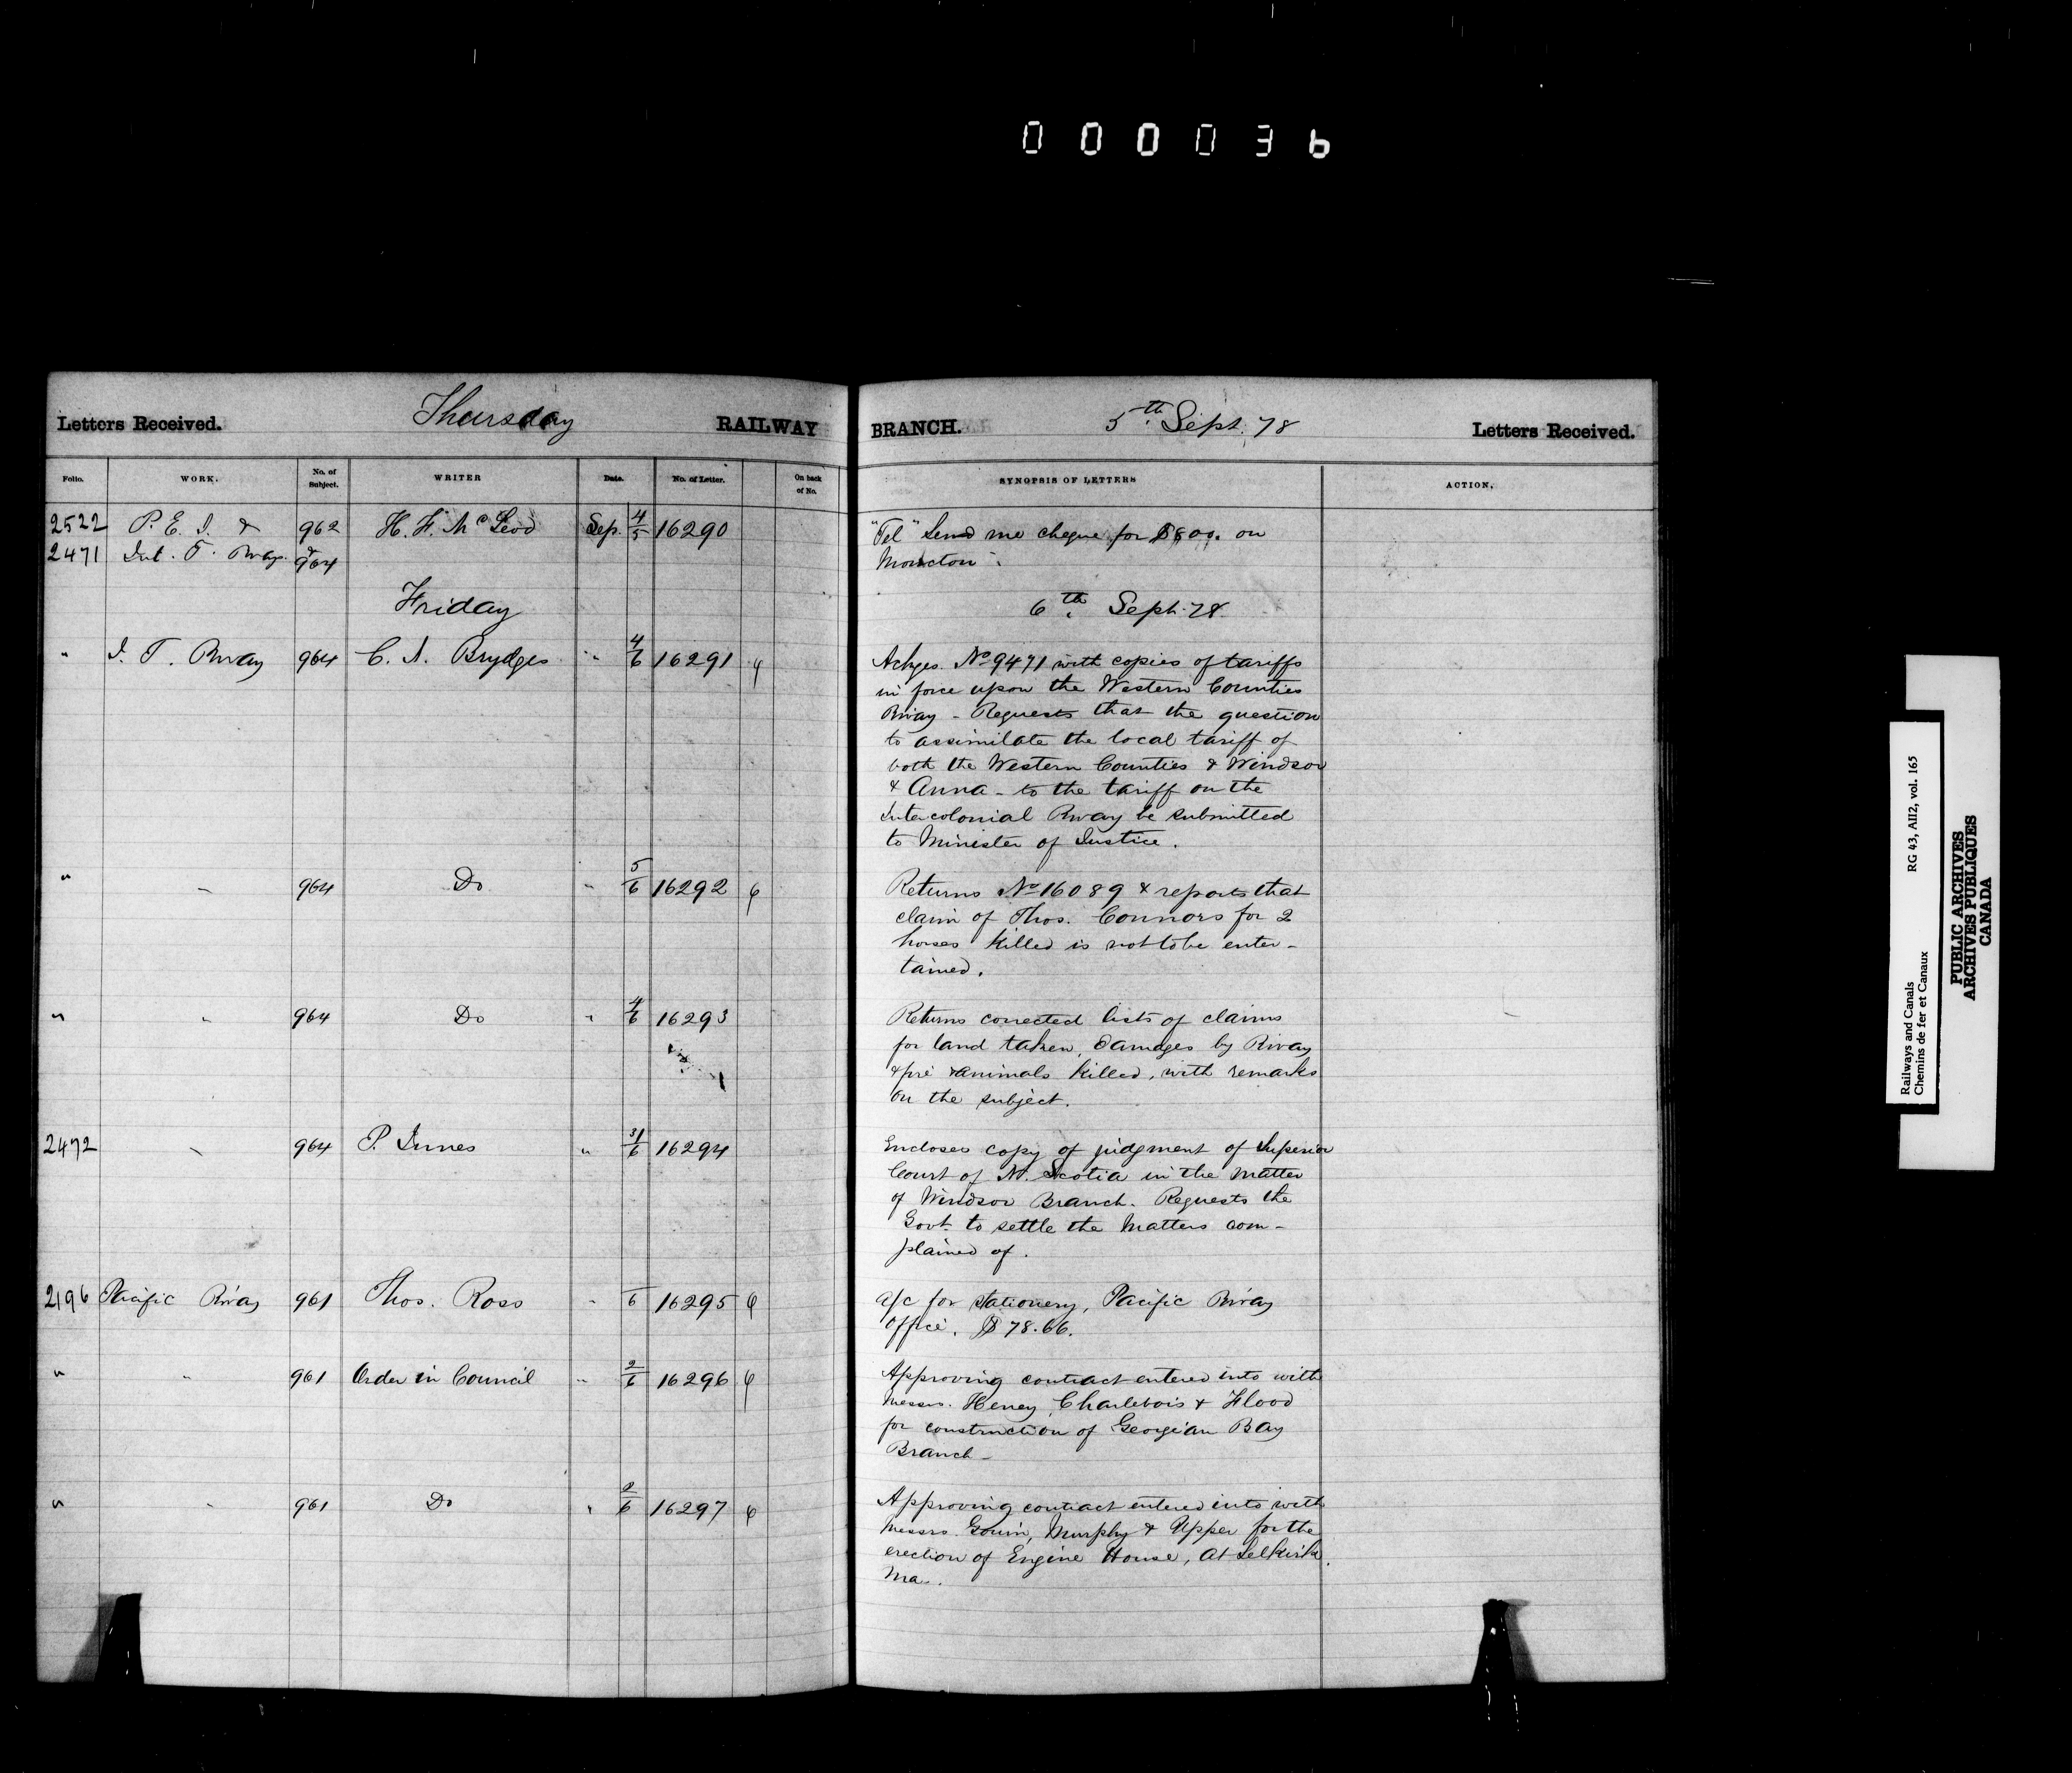 000036
Letters Received. Thursday RAILWAY BRANCH. 5th Sept. 78 Letters Received.
Folio. WORK. No. of Subject. WRITER Date. No. of Letter. On back of No. SYNOPSIS OF LETTERS ACTION.
2522 P. E. I. & 962 H. F. McLeod Sep. 4/5 16290 "Tel" Send me cheque for $800. on
2471 Int. F. Rway. & 964 Moncton.
Friday 6th Sept. 78.
" I. F. Rway 964 C. J. Brydges " 4/6 16291 Ackges. No 9471 with copies of tariffs
in force upon the Western Counties
Rway - Requests that the question
to assimilate the local tariff of
both the Western Counties & Windsor
& Anna - to the tariff on the
Intercolonial Rway be submitted
to Minister of Justice.
" " 964 Do " 5/6 16292 Returns No 16089 & reports that
claim of Thos. Connors for 2
horses killed is not to be enter-
tained.
" " 964 Do " 4/6 16293 Returns corrected lists of claims
for land taken, damages by Rway
& animals killed, with remarks
on the subject.
2472 " 964 P. Innes " 31/6 16294 Encloses copy of judgment of Superior
Court of N. Scotia in the matter
of Windsor Branch. Requests the
Govt. to settle the matters com-
plained of.
2196 Pacific Rway 961 Thos. Ross " 6 16295 a/c for stationery, Pacific Rway
Office. $78.66.
" " 961 Order in Council " 2/6 16296 Approving contract entered into with
Messrs. Heney, Charlebois & Flood
for construction of Georgian Bay
Branch -
" " 961 Do " 2/6 16297 Approving contract entered into with
Messrs. Gouin, Murphy & Upper for the
erection of Engine House, at Selkirk,
Ma.
Railways and Canals RG 43, AII2, vol. 165
Chemins de fer et Canaux
PUBLIC ARCHIVES
ARCHIVES PUBLIQUES
CANADA